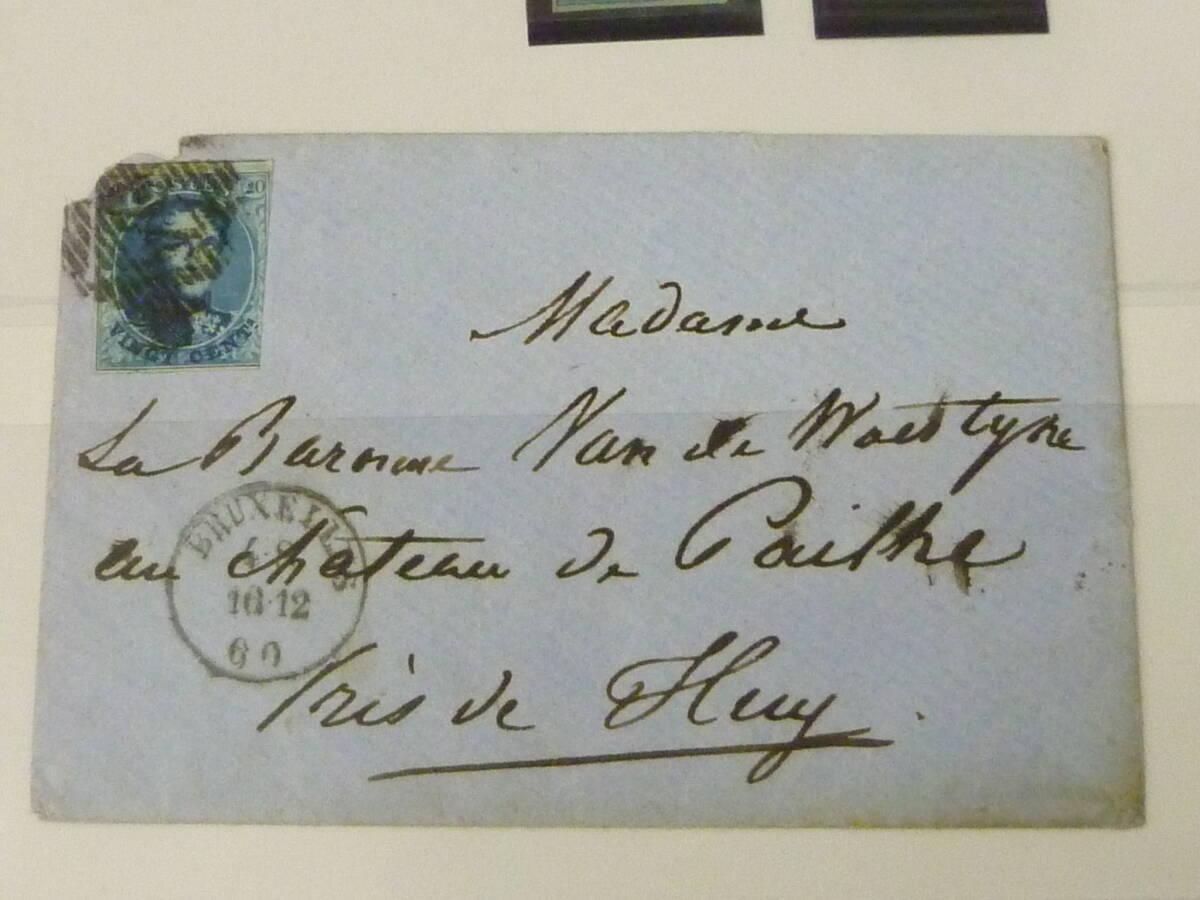 20
VINGT CENTS
Madame
La Baronne Van de Woestyne
au château de Pailhe
Près de Huy.
BRUXELLES
16·12
60